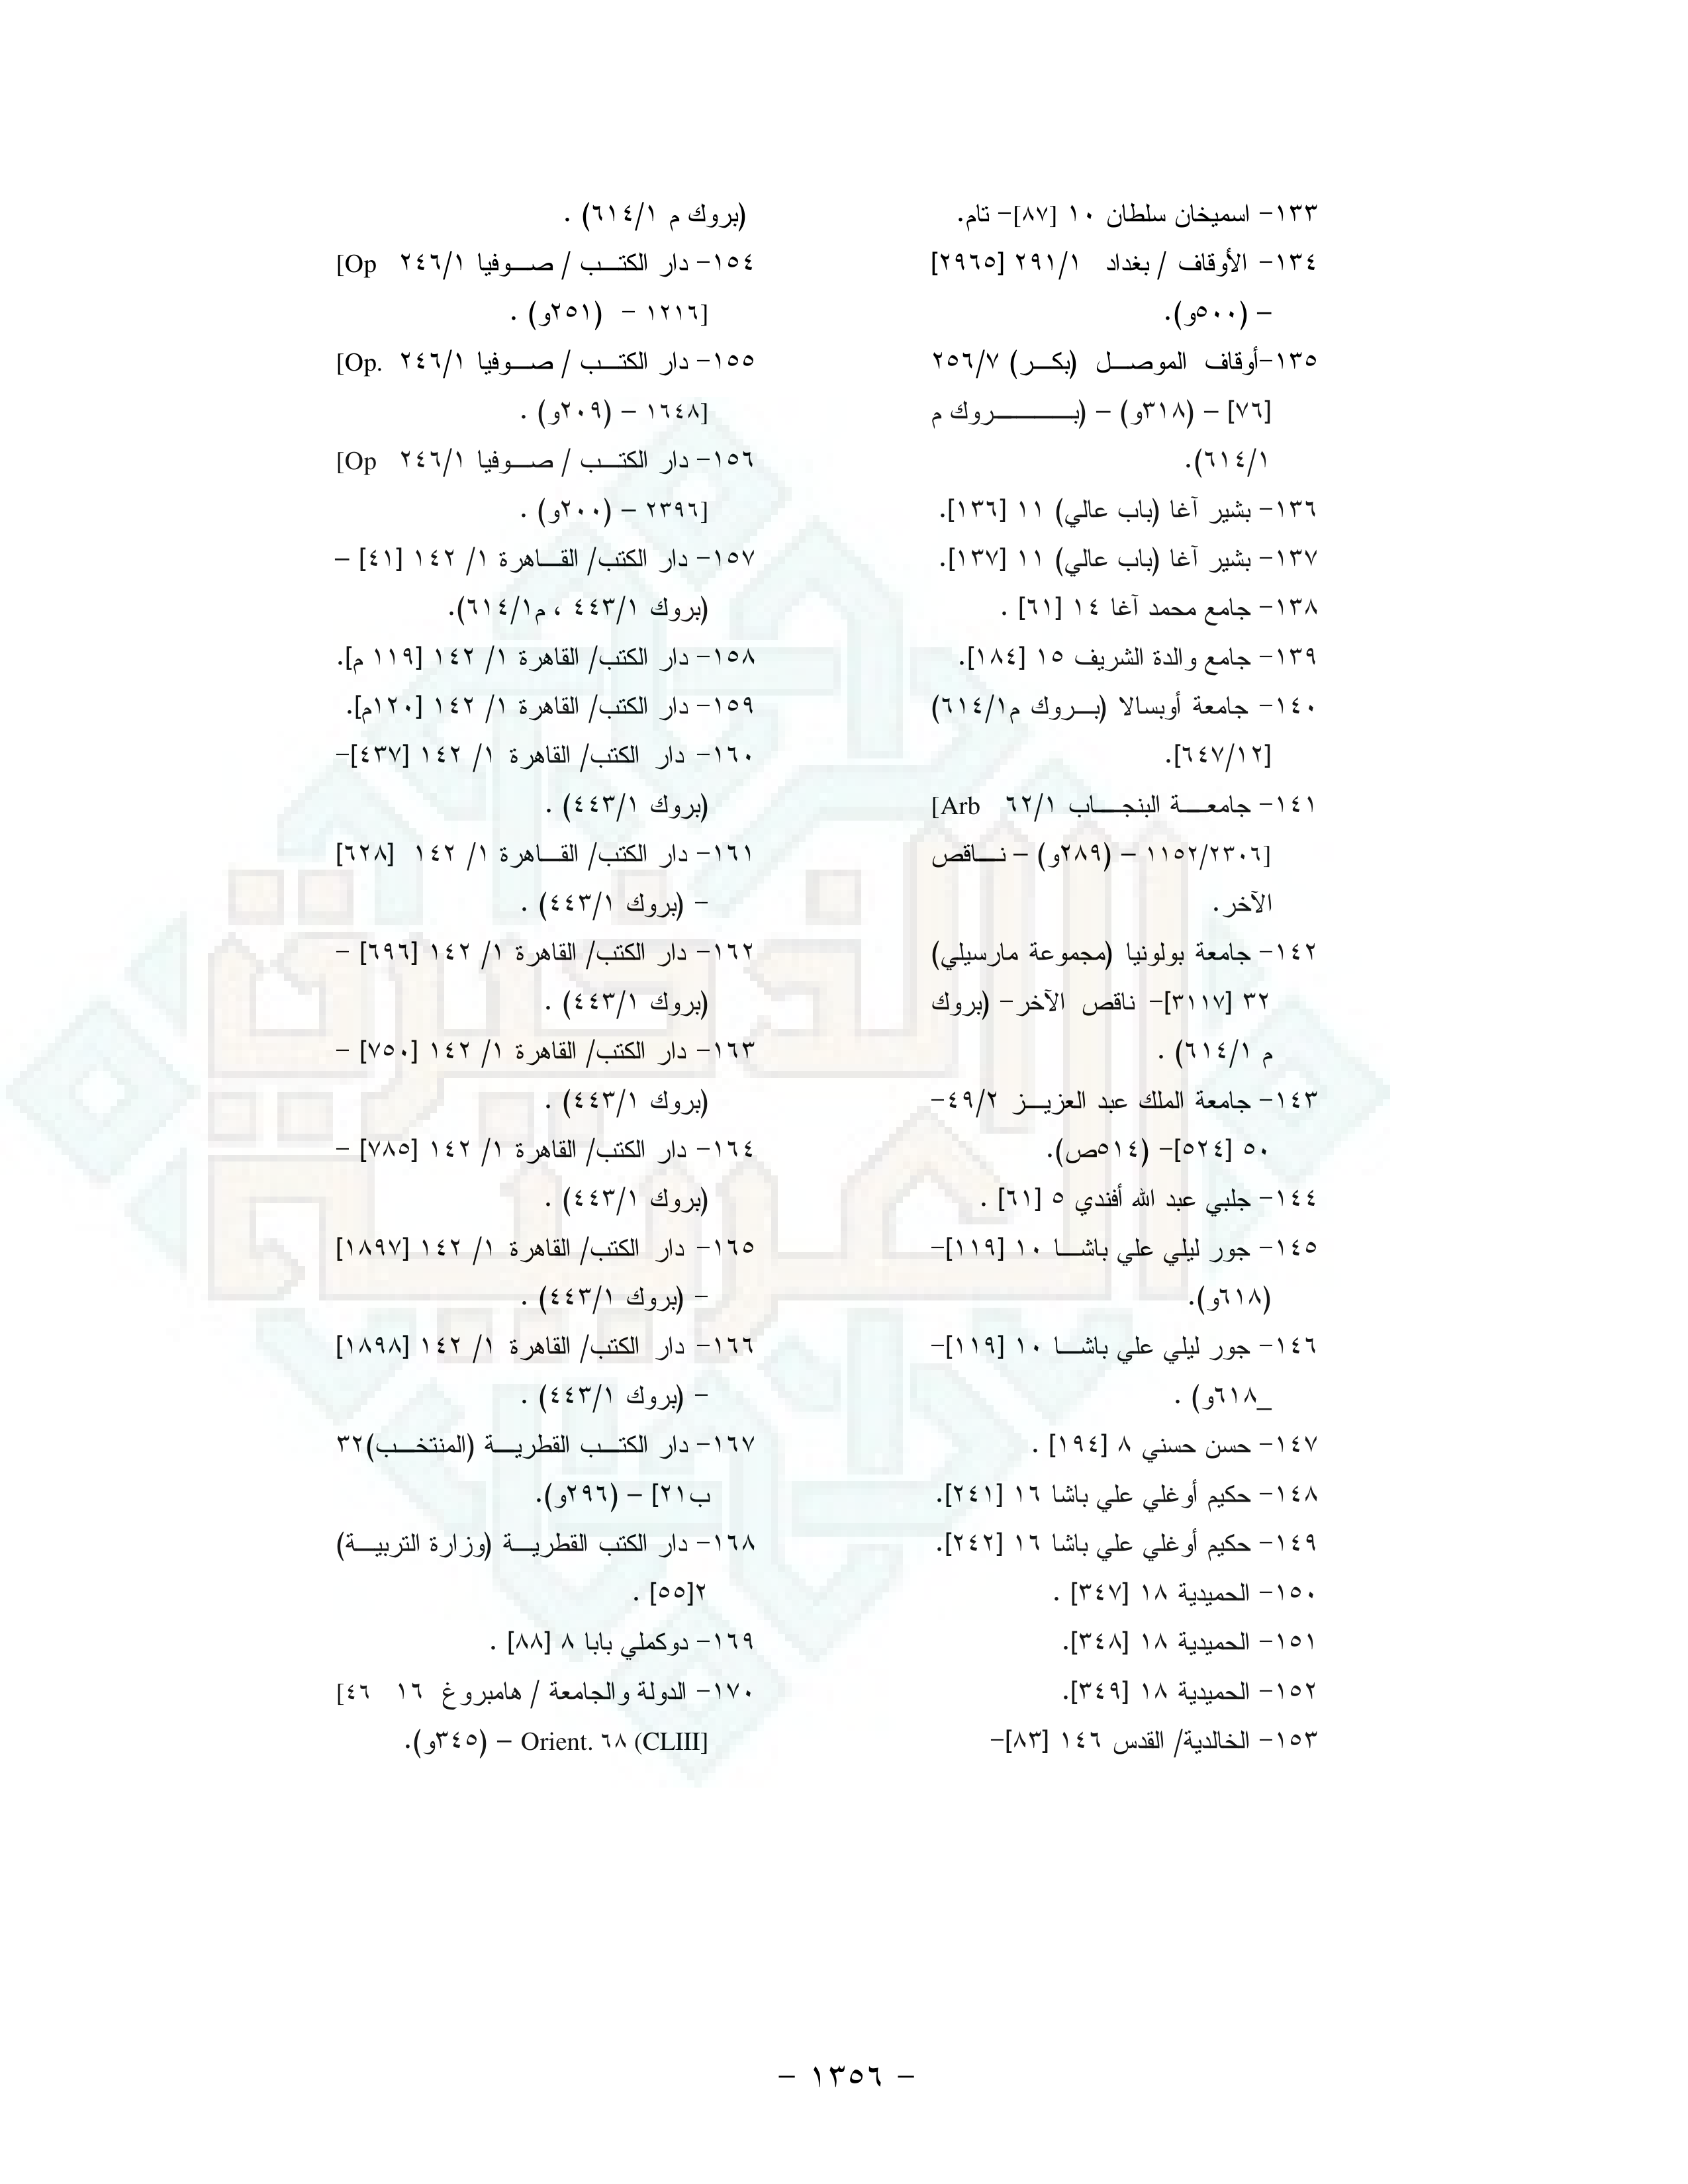 ١٣٣- اسميخان سلطان ١٠ [٨٧]- تام.
١٣٤- الأوقاف / بغداد ٢٩١/١ [٢٩٦٥]
– (٥٠٠و).
١٣٥-أوقاف الموصل (بكر) ٢٥٦/٧
[٧٦] – (٣١٨و) – (بروك م
٦١٤/١).
١٣٦- بشير آغا (باب عالي) ١١ [١٣٦].
١٣٧- بشير آغا (باب عالي) ١١ [١٣٧].
١٣٨- جامع محمد آغا ١٤ [٦١] .
١٣٩- جامع والدة الشريف ١٥ [١٨٤].
١٤٠- جامعة أوبسالا (بروك م٦١٤/١)
[٦٤٧/١٢].
١٤١- جامعة البنجاب ٦٢/١ [Arb
١١٥٢/٢٣٠٦] – (٢٨٩و) – ناقص
الآخر.
١٤٢- جامعة بولونيا (مجموعة مارسيلي)
٣٢ [٣١١٧]- ناقص الآخر- (بروك
م ٦١٤/١) .
١٤٣- جامعة الملك عبد العزيز ٤٩/٢-
٥٠ [٥٢٤]- (٥١٤ص).
١٤٤- جلبي عبد الله أفندي ٥ [٦١] .
١٤٥- جور ليلي علي باشا ١٠ [١١٩]-
(٦١٨و).
١٤٦- جور ليلي علي باشا ١٠ [١١٩]-
_٦١٨و) .
١٤٧- حسن حسني ٨ [١٩٤] .
١٤٨- حكيم أوغلي علي باشا ١٦ [٢٤١].
١٤٩- حكيم أوغلي علي باشا ١٦ [٢٤٢].
١٥٠- الحميدية ١٨ [٣٤٧] .
١٥١- الحميدية ١٨ [٣٤٨].
١٥٢- الحميدية ١٨ [٣٤٩].
١٥٣- الخالدية/ القدس ١٤٦ [٨٣]-
(بروك م ٦١٤/١) .
١٥٤- دار الكتب / صوفيا ٢٤٦/١ [Op
١٢١٦] – (٢٥١و) .
١٥٥- دار الكتب / صوفيا ٢٤٦/١ [Op.
١٦٤٨] – (٢٠٩و) .
١٥٦- دار الكتب / صوفيا ٢٤٦/١ [Op
٢٣٩٦] – (٢٠٠و) .
١٥٧- دار الكتب/ القاهرة ١/ ١٤٢ [٤١] –
(بروك ٤٤٣/١ ، م٦١٤/١).
١٥٨- دار الكتب/ القاهرة ١/ ١٤٢ [١١٩ م].
١٥٩- دار الكتب/ القاهرة ١/ ١٤٢ [١٢٠م].
١٦٠- دار الكتب/ القاهرة ١/ ١٤٢ [٤٣٧]-
(بروك ٤٤٣/١) .
١٦١- دار الكتب/ القاهرة ١/ ١٤٢ [٦٢٨]
– (بروك ٤٤٣/١) .
١٦٢- دار الكتب/ القاهرة ١/ ١٤٢ [٦٩٦] –
(بروك ٤٤٣/١) .
١٦٣- دار الكتب/ القاهرة ١/ ١٤٢ [٧٥٠] –
(بروك ٤٤٣/١) .
١٦٤- دار الكتب/ القاهرة ١/ ١٤٢ [٧٨٥] –
(بروك ٤٤٣/١) .
١٦٥- دار الكتب/ القاهرة ١/ ١٤٢ [١٨٩٧]
– (بروك ٤٤٣/١) .
١٦٦- دار الكتب/ القاهرة ١/ ١٤٢ [١٨٩٨]
– (بروك ٤٤٣/١) .
١٦٧- دار الكتب القطرية (المنتخب)٣٢
ب٢١] – (٢٩٦و).
١٦٨- دار الكتب القطرية (وزارة التربية)
٢[٥٥] .
١٦٩- دوكملي بابا ٨ [٨٨] .
١٧٠- الدولة والجامعة / هامبروغ ١٦ [٤٦
Orient. ٦٨ (CLIII] – (٣٤٥و).
- ١٣٥٦ -
الذخيرة
العربية